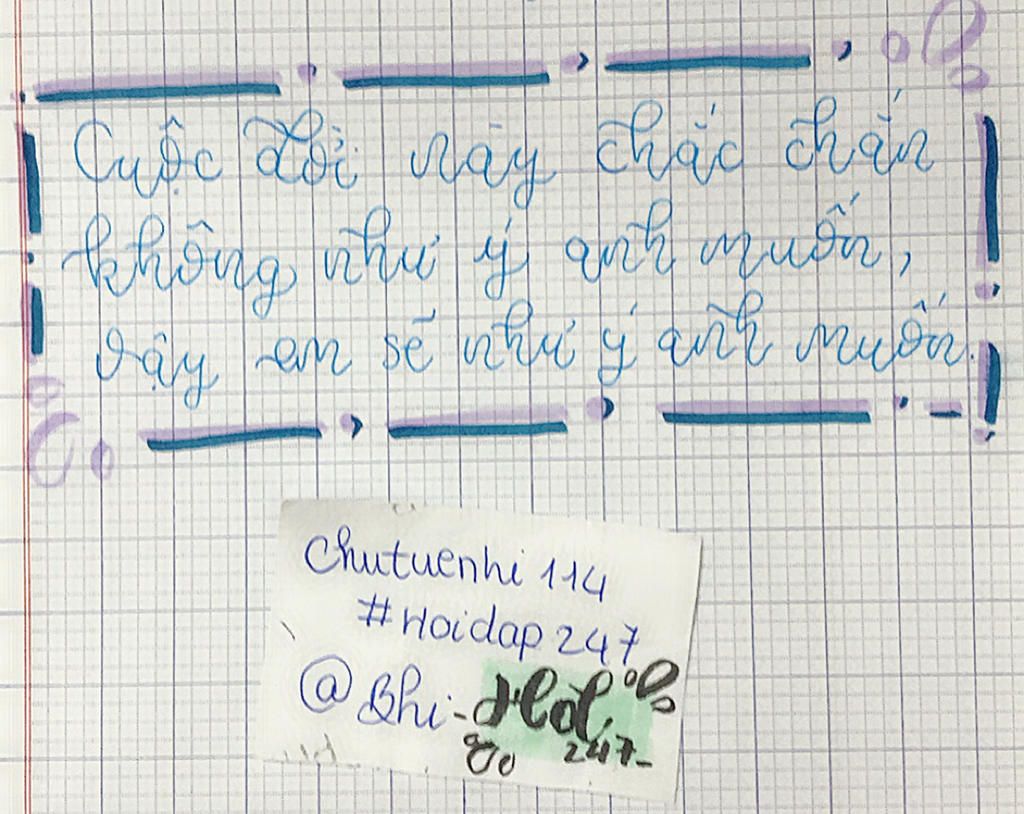 Cuộc đời này chắc chắn
không như ý anh muốn,
vậy em sẽ như ý anh muốn.
Chutuenhi 114
#Hoidap 247
@Bhi-
247-